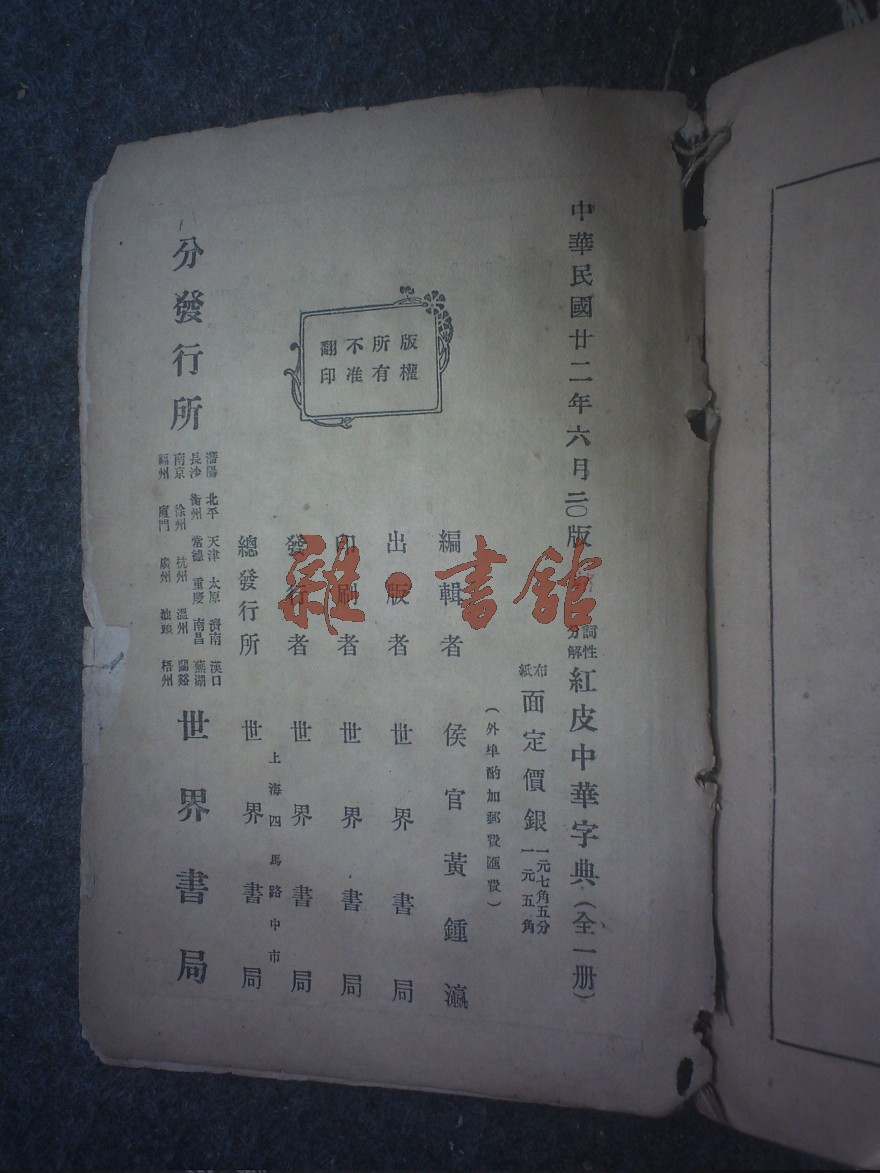 中華民國廿二年六月二〇版
詞性
分解
紅皮中華字典(全一册)
布
紙
面定價銀
一元七角五分
一元五角
(外埠酌加郵費匯費)
版權
所有
不准
翻印
編輯者 侯官黃鍾瀛
出版者 世界書局
印刷者 世界書局
發行者 世界書局
上海四馬路中市
總發行所 世界書局
分發行所
瀋陽 北平 天津 太原 濟南 漢口
長沙 衡州 常德 重慶 南昌 蕪湖
南京 徐州 杭州 溫州 蘭谿
福州 廈門 廣州 汕頭 梧州
世界書局
雜·書館